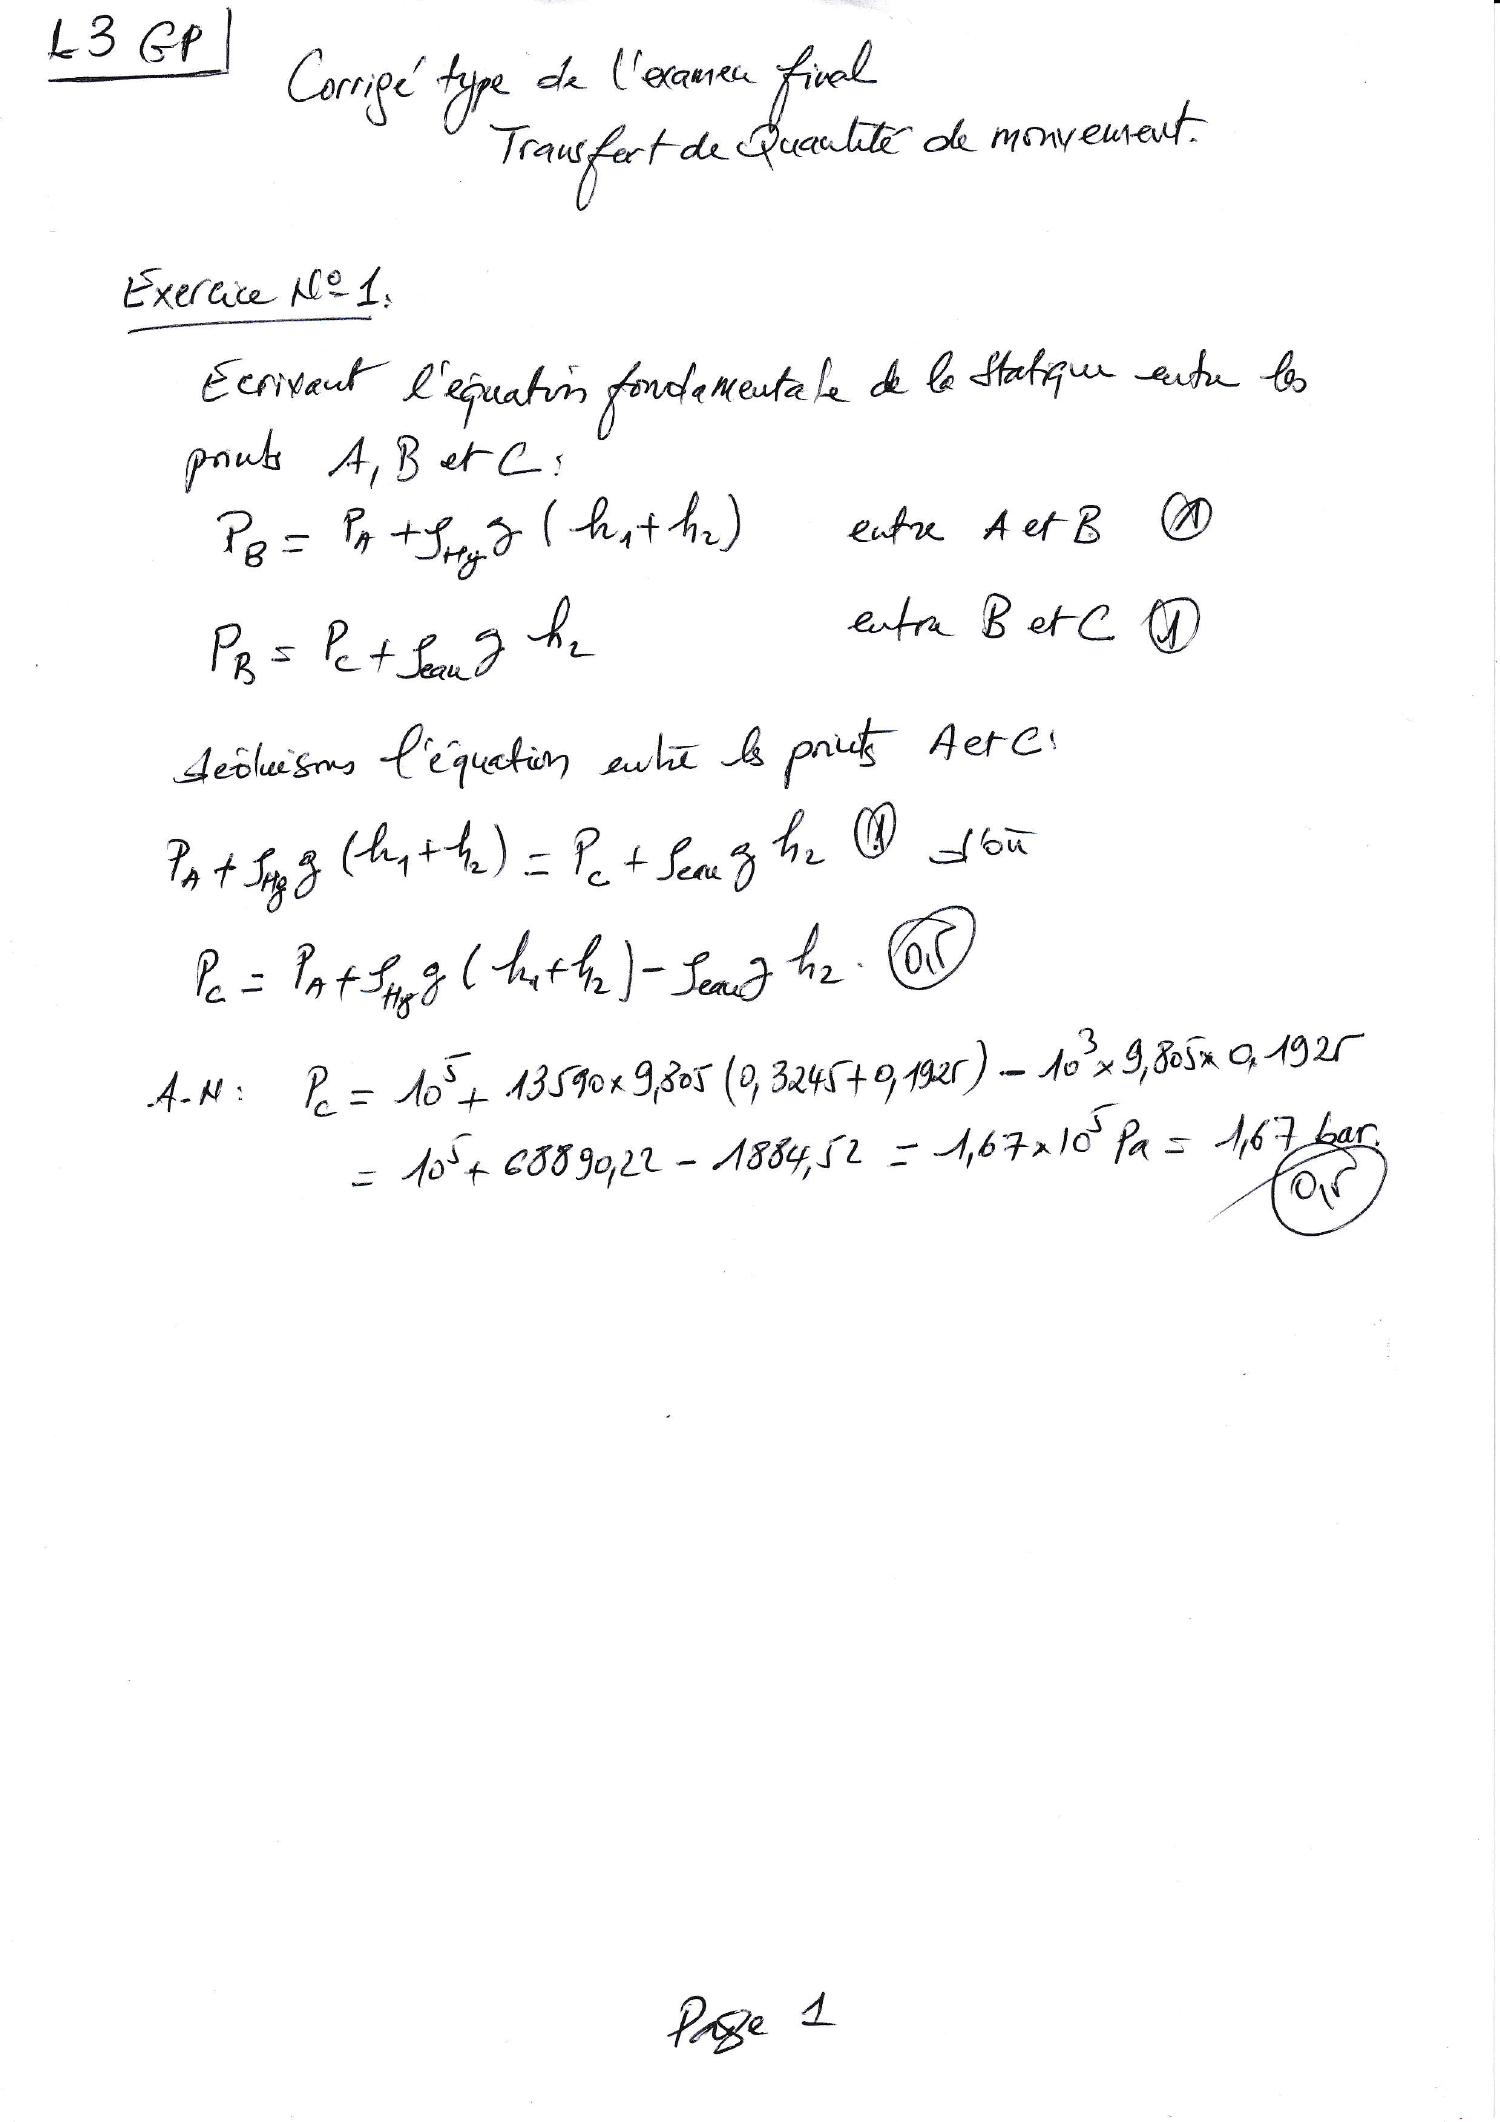 L3 GP
Corrigé type de l'examen final
Transfert de Quantité de mouvement.
Exercice N° 1:
Ecrivant l'équation fondamentale de la statique entre les
points A, B et C:
P_B = P_A + ρ_Hg g (h₁ + h₂) entre A et B (1)
P_B = P_C + ρ_eau g h₂ entre B et C (1)
déduisons l'équation entre les points A et C:
P_A + ρ_Hg g (h₁ + h₂) = P_C + ρ_eau g h₂ (1) d'où
P_C = P_A + ρ_Hg g (h₁ + h₂) - ρ_eau g h₂. (0,5)
A.N: P_C = 10⁵ + 13590 × 9,805 (0,3245 + 0,1925) - 10³ × 9,805 × 0,1925
= 10⁵ + 68890,22 - 1884,52 = 1,67 × 10⁵ Pa = 1,67 bar.
(0,5)
Page 1